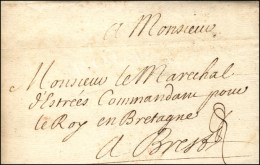 A Monsieur
Monsieur le Marechal
d'Estrées Commandant pour
le Roy en Bretagne
A Brest